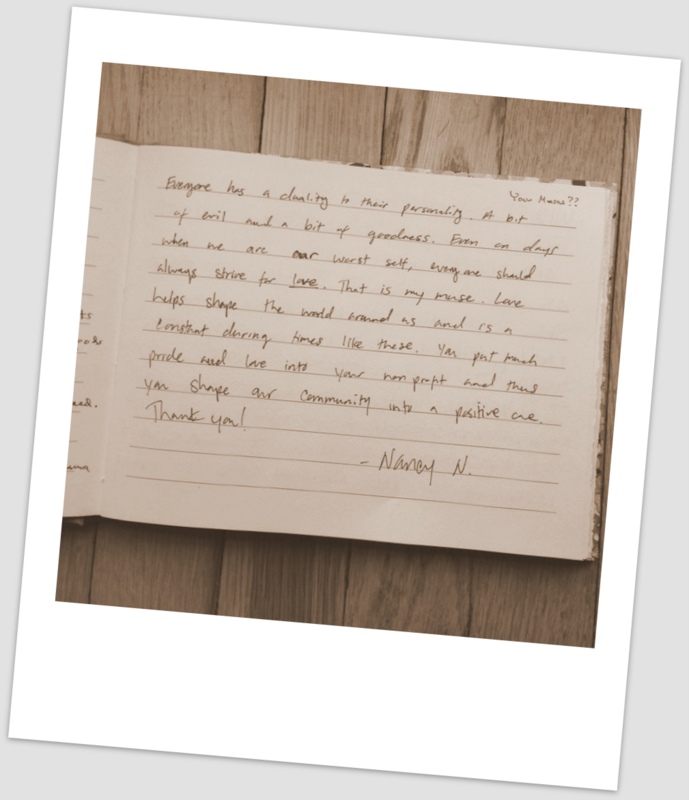 Your Muse??
Everyone has a duality to their personality. A bit
of evil and a bit of goodness. Even on days
when we are our worst self, everyone should
always strive for love. That is my muse. Love
helps shape the world around us and is a
constant during times like these. You put much
pride and love into your non profit and thus
you shape our community into a positive one.
Thank you!
- Nancy N.